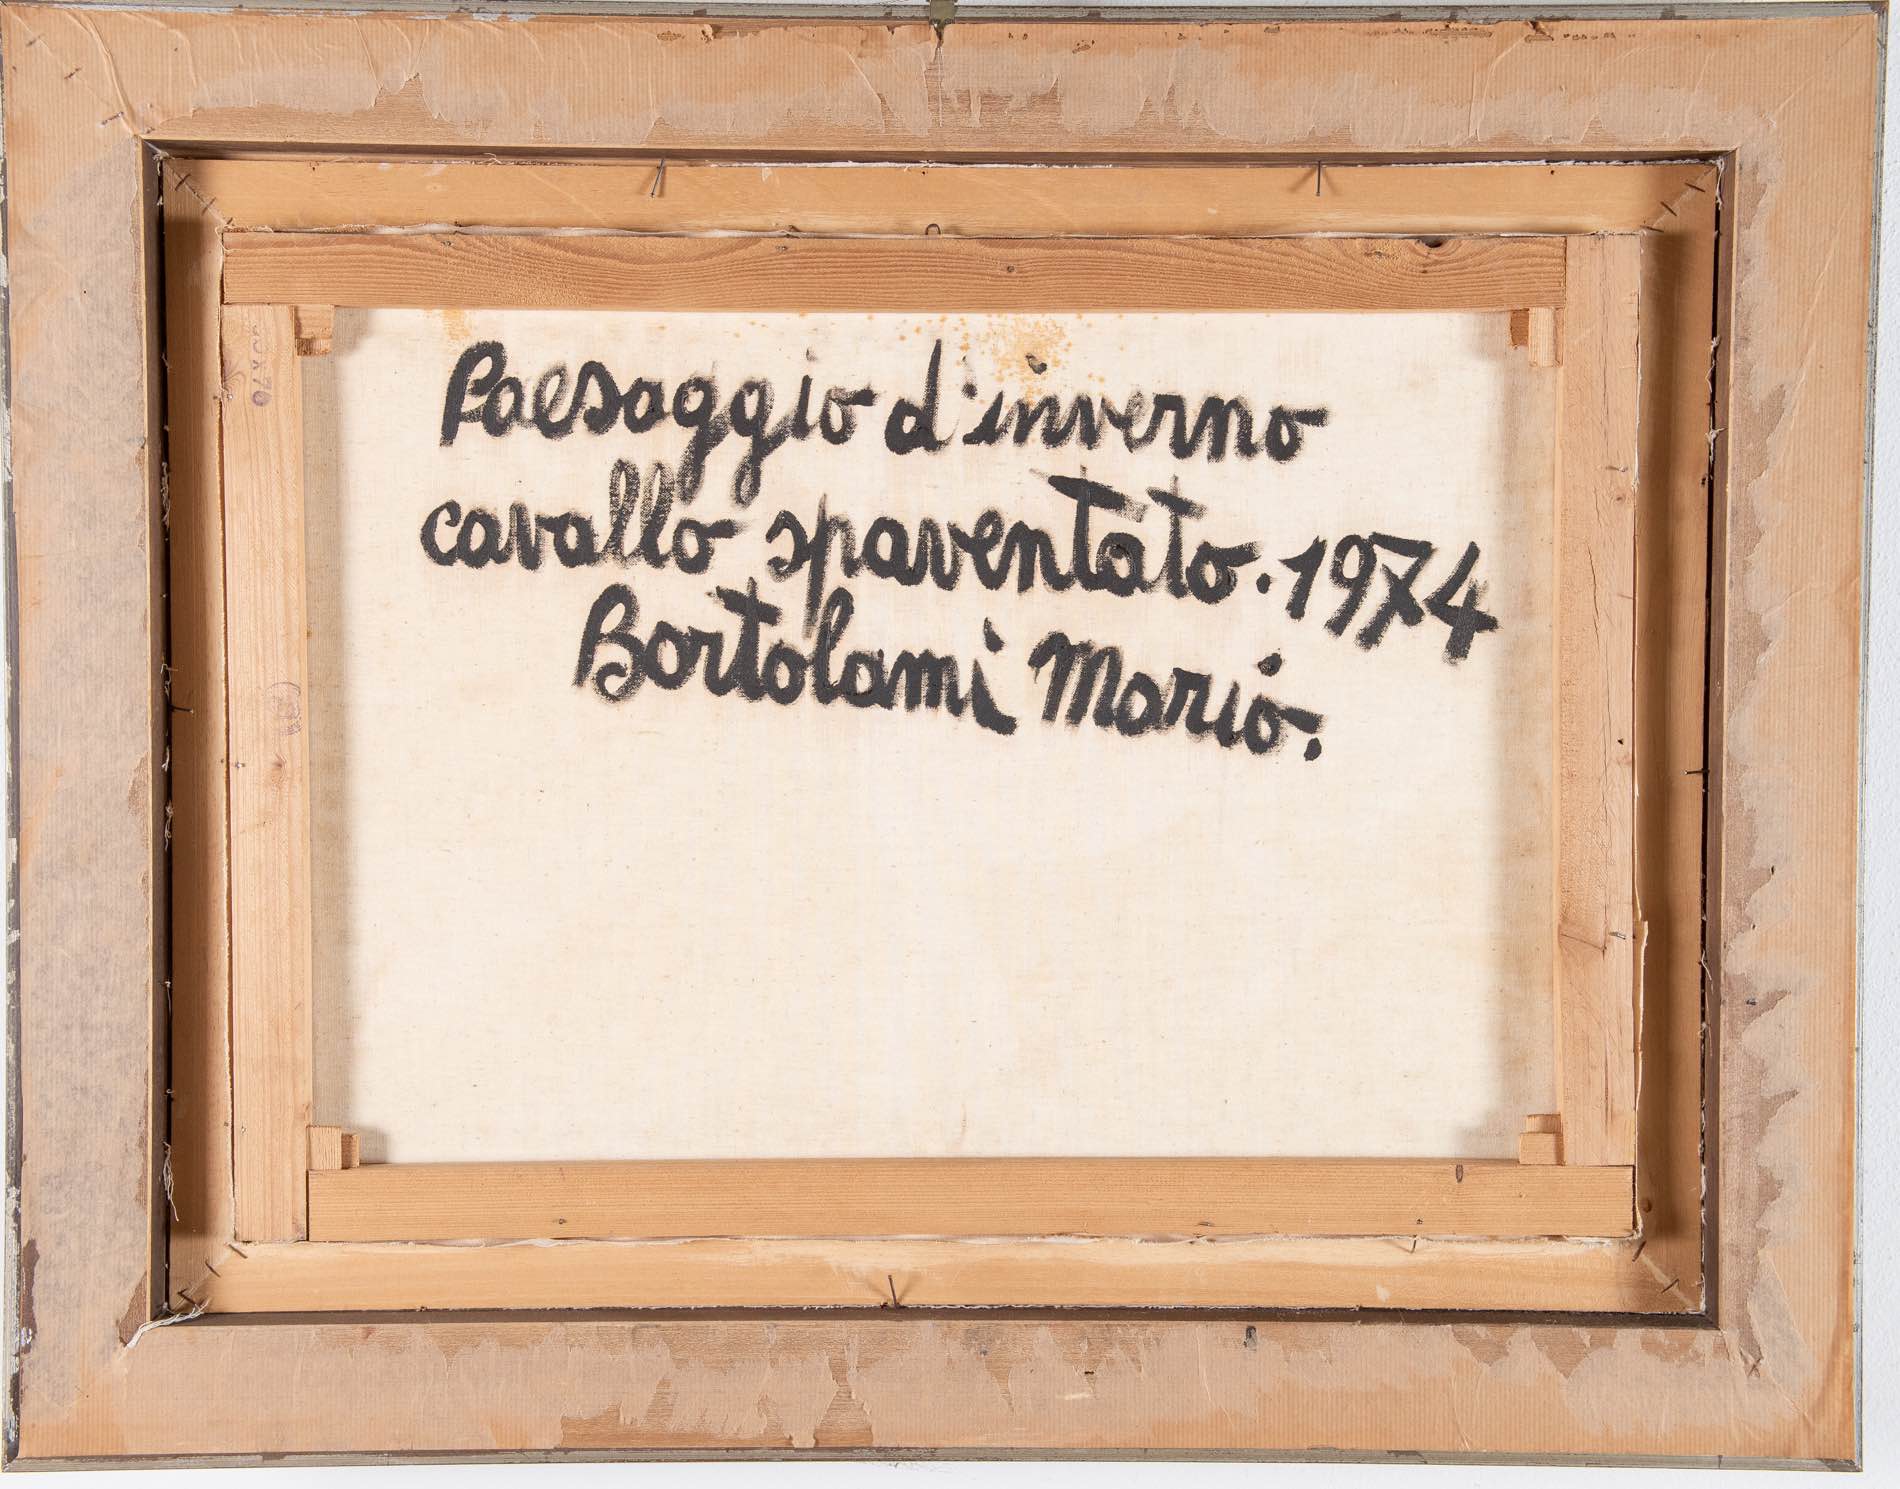 Paesaggio d'inverno
cavallo spaventato. 1974
Bortolami Mario.